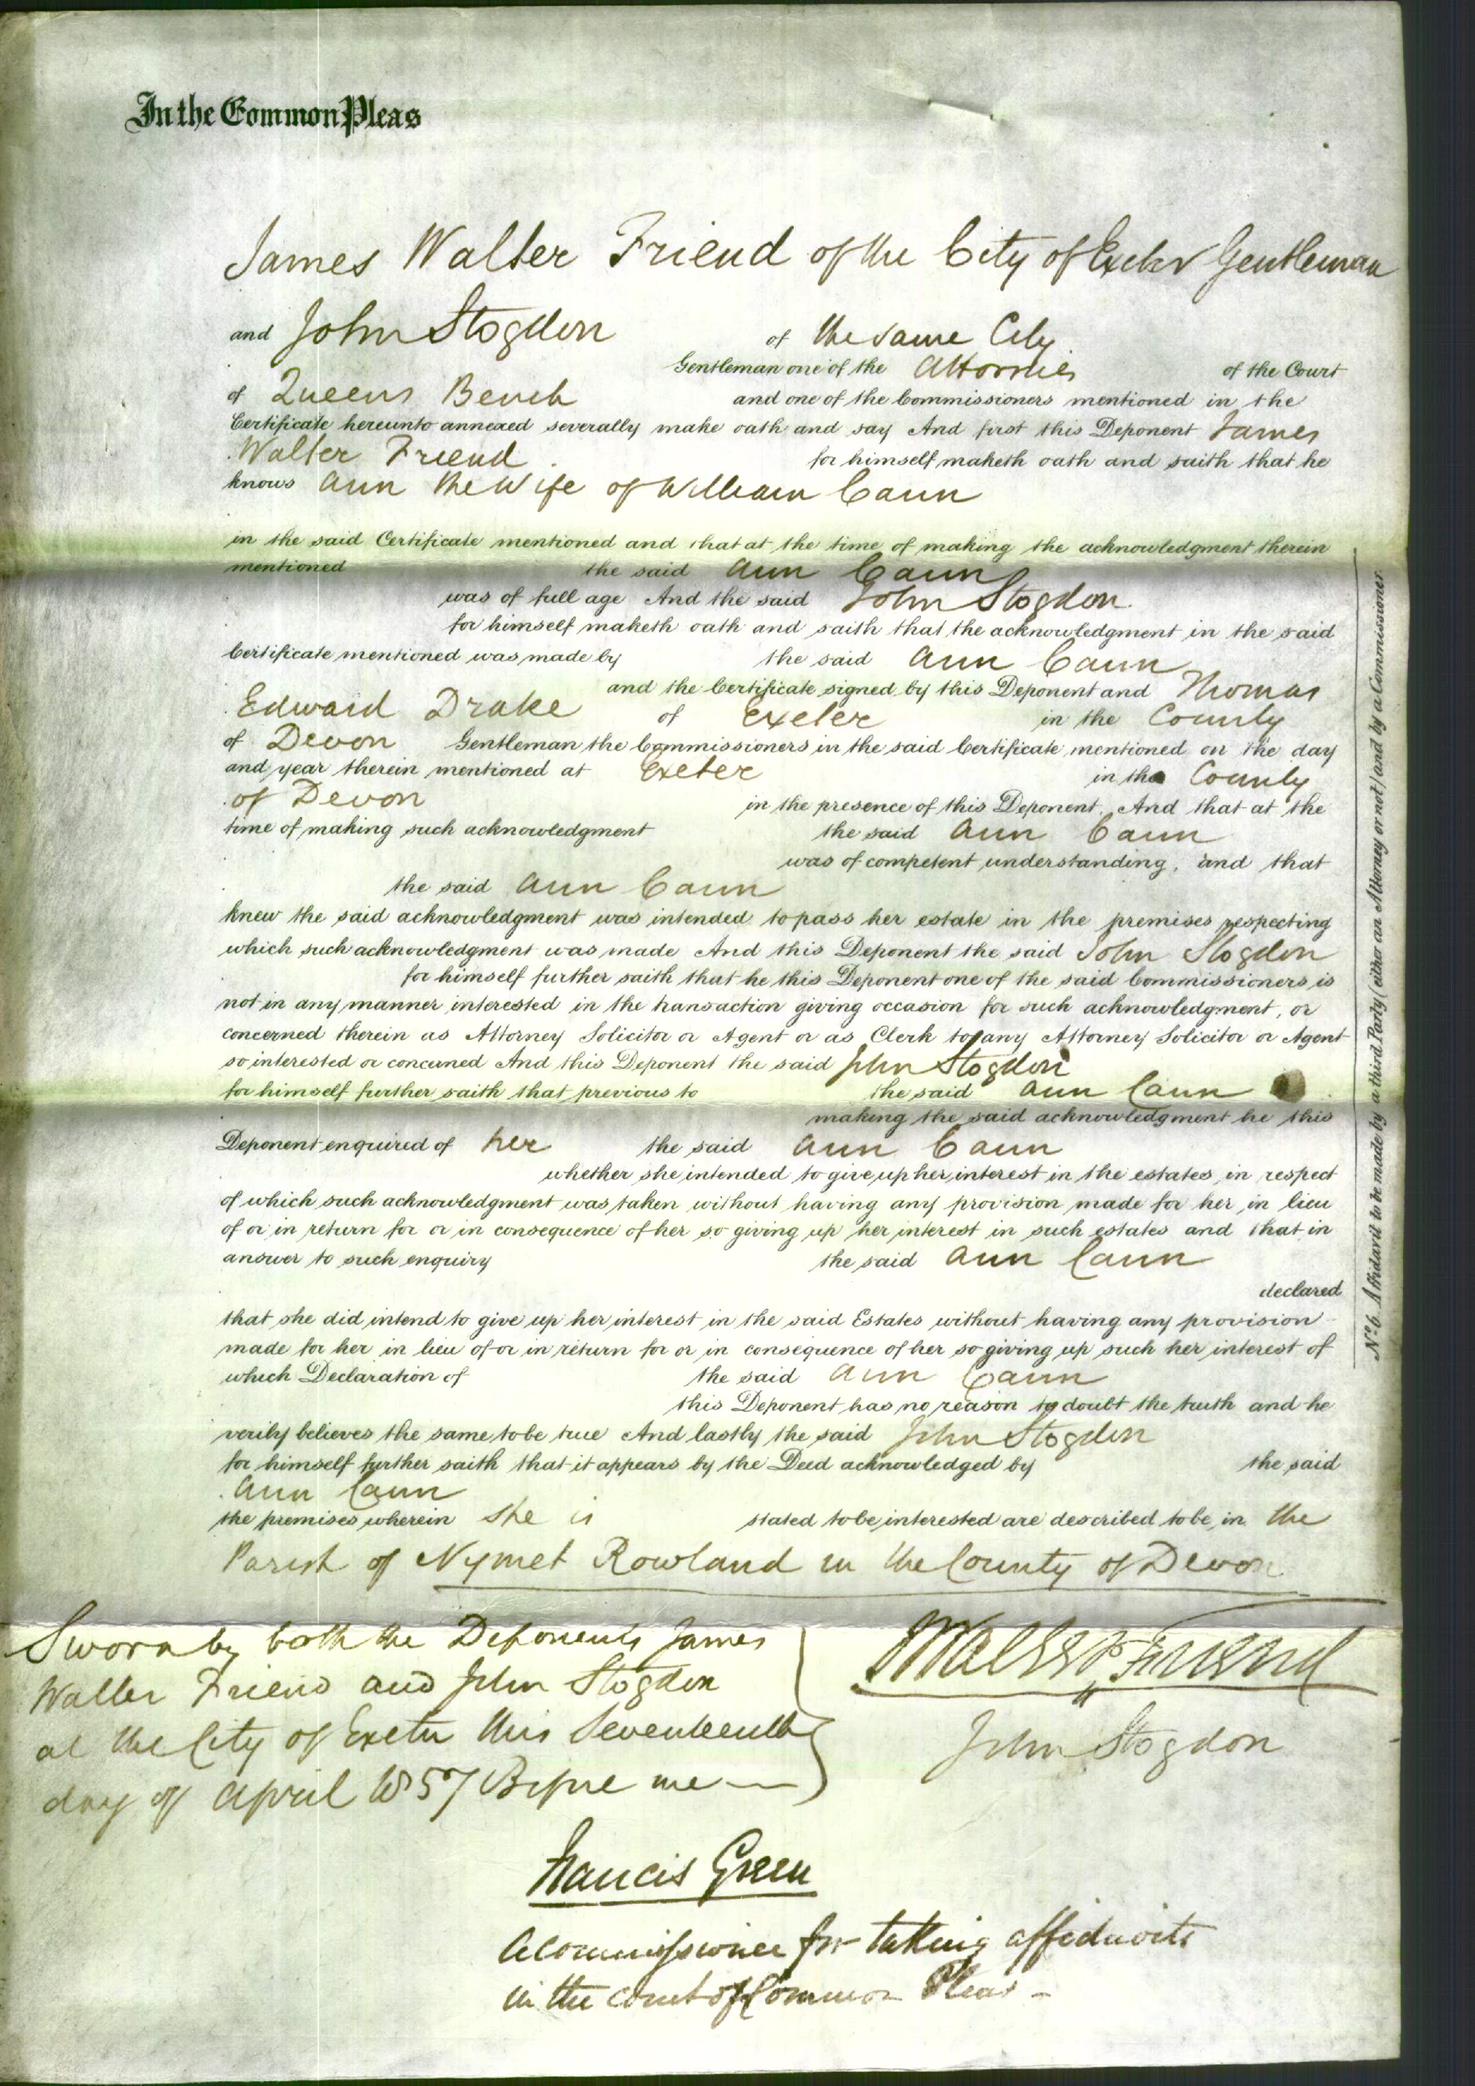 In the Common Pleas
James Walter Friend of the City of Exeter Gentleman
and John Stogdon of the same City
Gentleman one of the Attornies of the Court
of Queens Bench and one of the Commissioners mentioned in the
Certificate hereunto annexed severally make oath and say And first this Deponent James
Walter Friend for himself maketh oath and saith that he
knows Ann the Wife of William Cann
in the said Certificate mentioned and that at the time of making the acknowledgment therein
mentioned the said Ann Cann
was of full age And the said John Stogdon
for himself maketh oath and saith that the acknowledgment in the said
Certificate mentioned was made by the said Ann Cann
and the Certificate signed by this Deponent and Thomas
Edward Drake of Exeter in the County
of Devon Gentleman the Commissioners in the said Certificate mentioned on the day
and year therein mentioned at Exeter in the County
of Devon in the presence of this Deponent. And that at the
time of making such acknowledgment the said Ann Cann
was of competent understanding, and that
the said Ann Cann
knew the said acknowledgment was intended to pass her estate in the premises respecting
which such acknowledgment was made And this Deponent the said John Stogdon
for himself further saith that he this Deponent one of the said Commissioners is
not in any manner interested in the transaction giving occasion for such acknowledgment, or
concerned therein as Attorney Solicitor or Agent or as Clerk to any Attorney Solicitor or Agent
so interested or concerned And this Deponent the said John Stogdon
for himself further saith that previous to the said Ann Cann
making the said acknowledgment he this
Deponent enquired of her the said Ann Cann
whether she intended to give up her interest in the estates in respect
of which such acknowledgment was taken without having any provision made for her in lieu
of or in return for or in consequence of her so giving up her interest in such estates and that in
answer to such enquiry the said Ann Cann
declared
that she did intend to give up her interest in the said Estates without having any provision
made for her in lieu of or in return for or in consequence of her so giving up such her interest of
which Declaration of the said Ann Cann
this Deponent has no reason to doubt the truth and he
verily believes the same to be true And lastly the said John Stogdon
for himself further saith that it appears by the Deed acknowledged by the said
Ann Cann
the premises wherein she is stated to be interested are described to be in the
Parish of Nymet Rowland in the County of Devon
Sworn by both the Deponents James
Walter Friend and John Stogdon
at the City of Exeter this Seventeenth
day of April 1857 Before me
JWalter Friend
John Stogdon
Francis Green
A Commissioner for taking affidavits
in the Court of Common Pleas
No. 6. Affidavit to be made by a third Party (either an Attorney or not) and by a Commissioner.